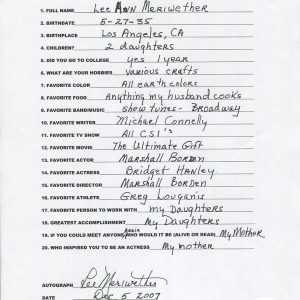 1. FULL NAME Lee Ann Meriwether
2. BIRTHDATE 5-27-35
3. BIRTHPLACE Los Angeles, CA
4. CHILDREN? 2 daughters
5. DID YOU GO TO COLLEGE yes 1 year
6. WHAT ARE YOUR HOBBIES various crafts
7. FAVORITE COLOR All earth colors
8. FAVORITE FOOD Anything my husband cooks
9. FAVORITE BAND/MUSIC Show tunes - Broadway
10. FAVORITE WRITER Michael Connelly
11. FAVORITE TV SHOW All CSI's
12. FAVORITE MOVIE The Ultimate Gift
13. FAVORITE ACTOR Marshall Borden
14. FAVORITE ACTRESS Bridget Hanley
15. FAVORITE DIRECTOR Marshall Borden
16. FAVORITE ATHLETE Greg Louganis
17. FAVORITE PERSON TO WORK WITH my Daughters
18. GREATEST ACCOMPLISHMENT My Daughters
19. IF YOU COULD MEET ANYONE Again WHO WOULD IT BE (ALIVE OR DEAD) My Mother
20. WHO INSPIRED YOU TO BE AN ACTRESS My mother
AUTOGRAPH Lee Meriwether
DATE Dec 5 2007